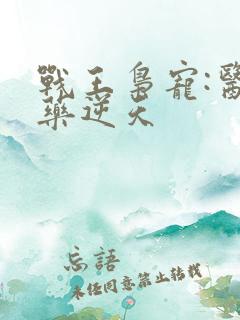 戰王梟寵:醫
藥逆天
忘語
未經同意禁止轉載